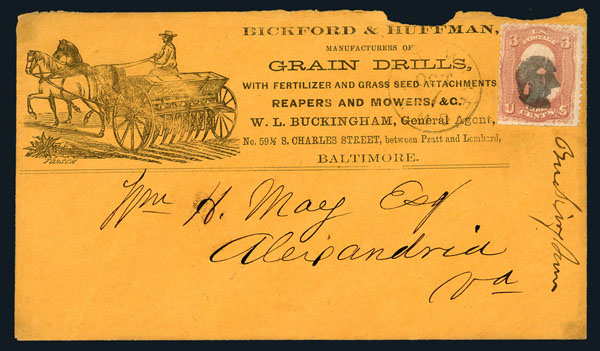 BICKFORD & HUFFMAN,
MANUFACTURERS OF
GRAIN DRILLS,
WITH FERTILIZER AND GRASS SEED ATTACHMENTS
REAPERS AND MOWERS, &C.
W. L. BUCKINGHAM, General Agent,
No. 59½ S. CHARLES STREET, between Pratt and Lombard,
BALTIMORE.
FORSCH
3 U.S. 3
POSTAGE
U CENTS S
Wm H. May Esq
Alexandria
Va
Buckingham